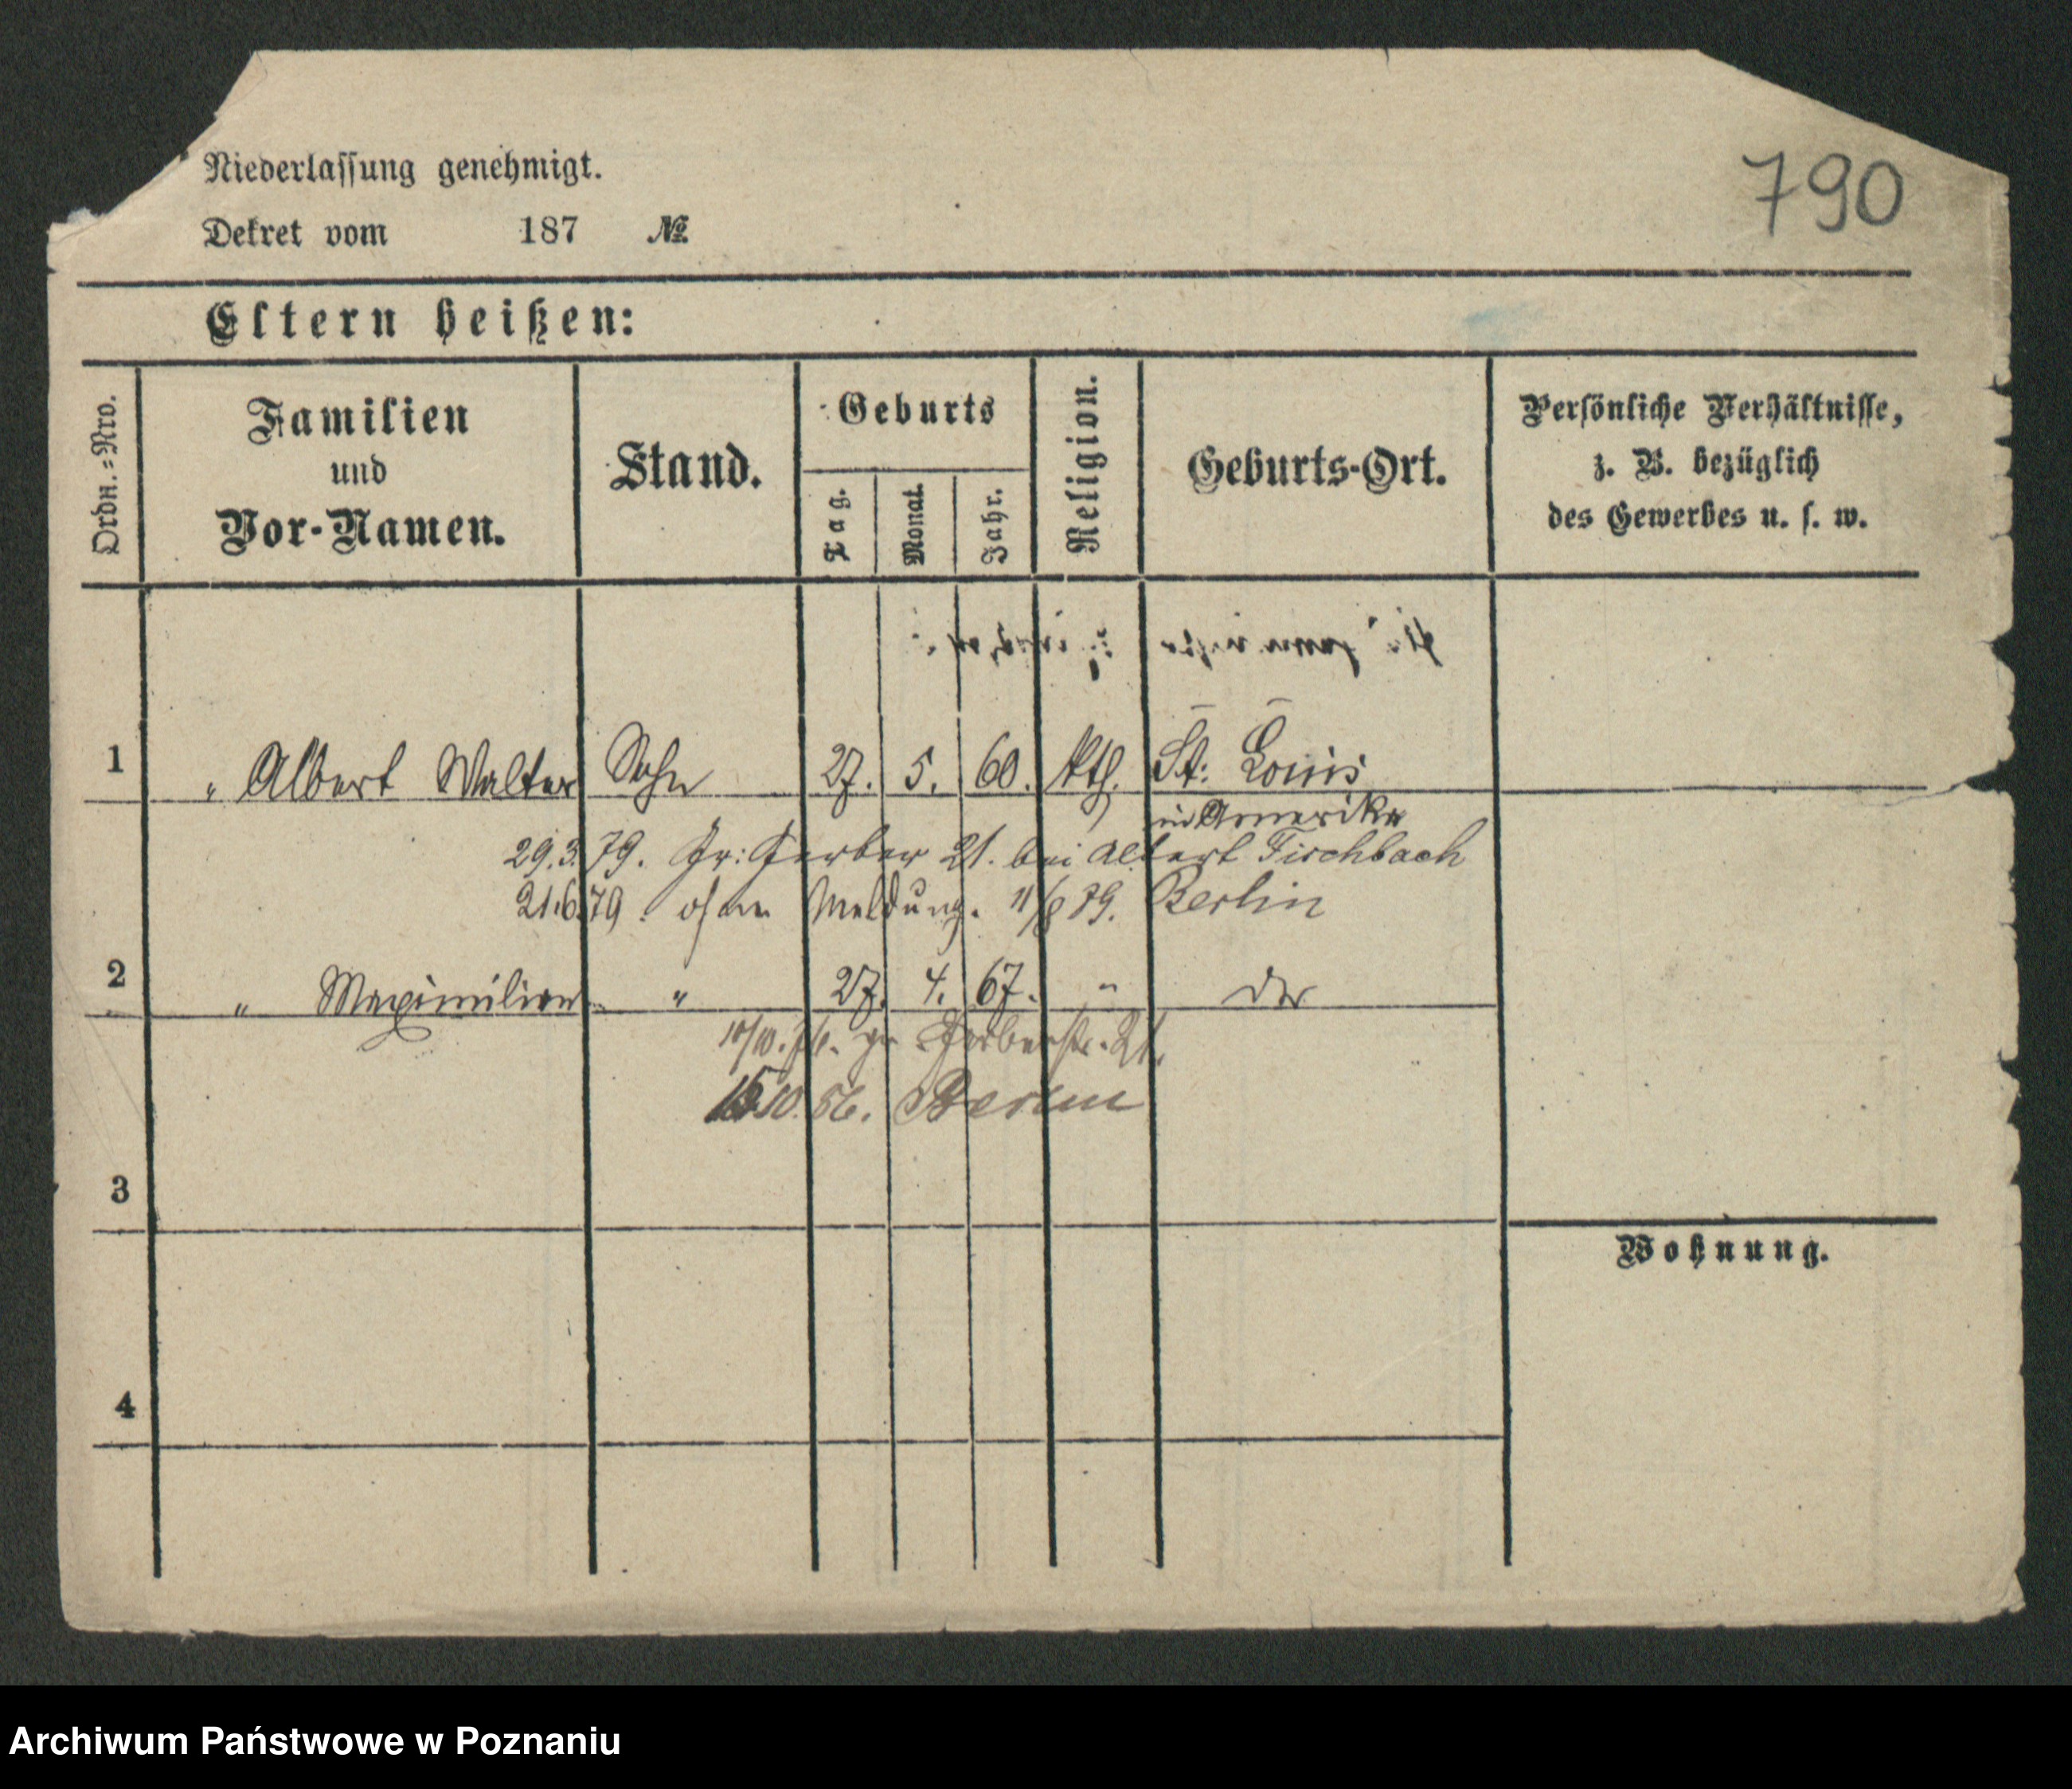 790
Niederlassung genehmigt.
Dekret vom 187 №
Eltern heißen:
Ordn.=Nro.
Familien
und
Vor-Namen.
Stand.
Geburts
Tag.
Monat.
Jahr.
Religion.
Geburts-Ort.
Persönliche Verhältnisse,
z. B. bezüglich
des Gewerbes u. s. w.
1 " Albert Walter Sohn 27. 5. 60. kth. St: Louis
in Amerika
29.3.79. Gr: Gerber 21. bei Albert Fischbach
21.6.79. ohne Meldung. 11/8 79. Berlin
2 " Maximilian " 27. 4. 67. "
gr. Gerberstr. 21.
10. 86. Berlin
3
Wohnung.
4
Archiwum Państwowe w Poznaniu